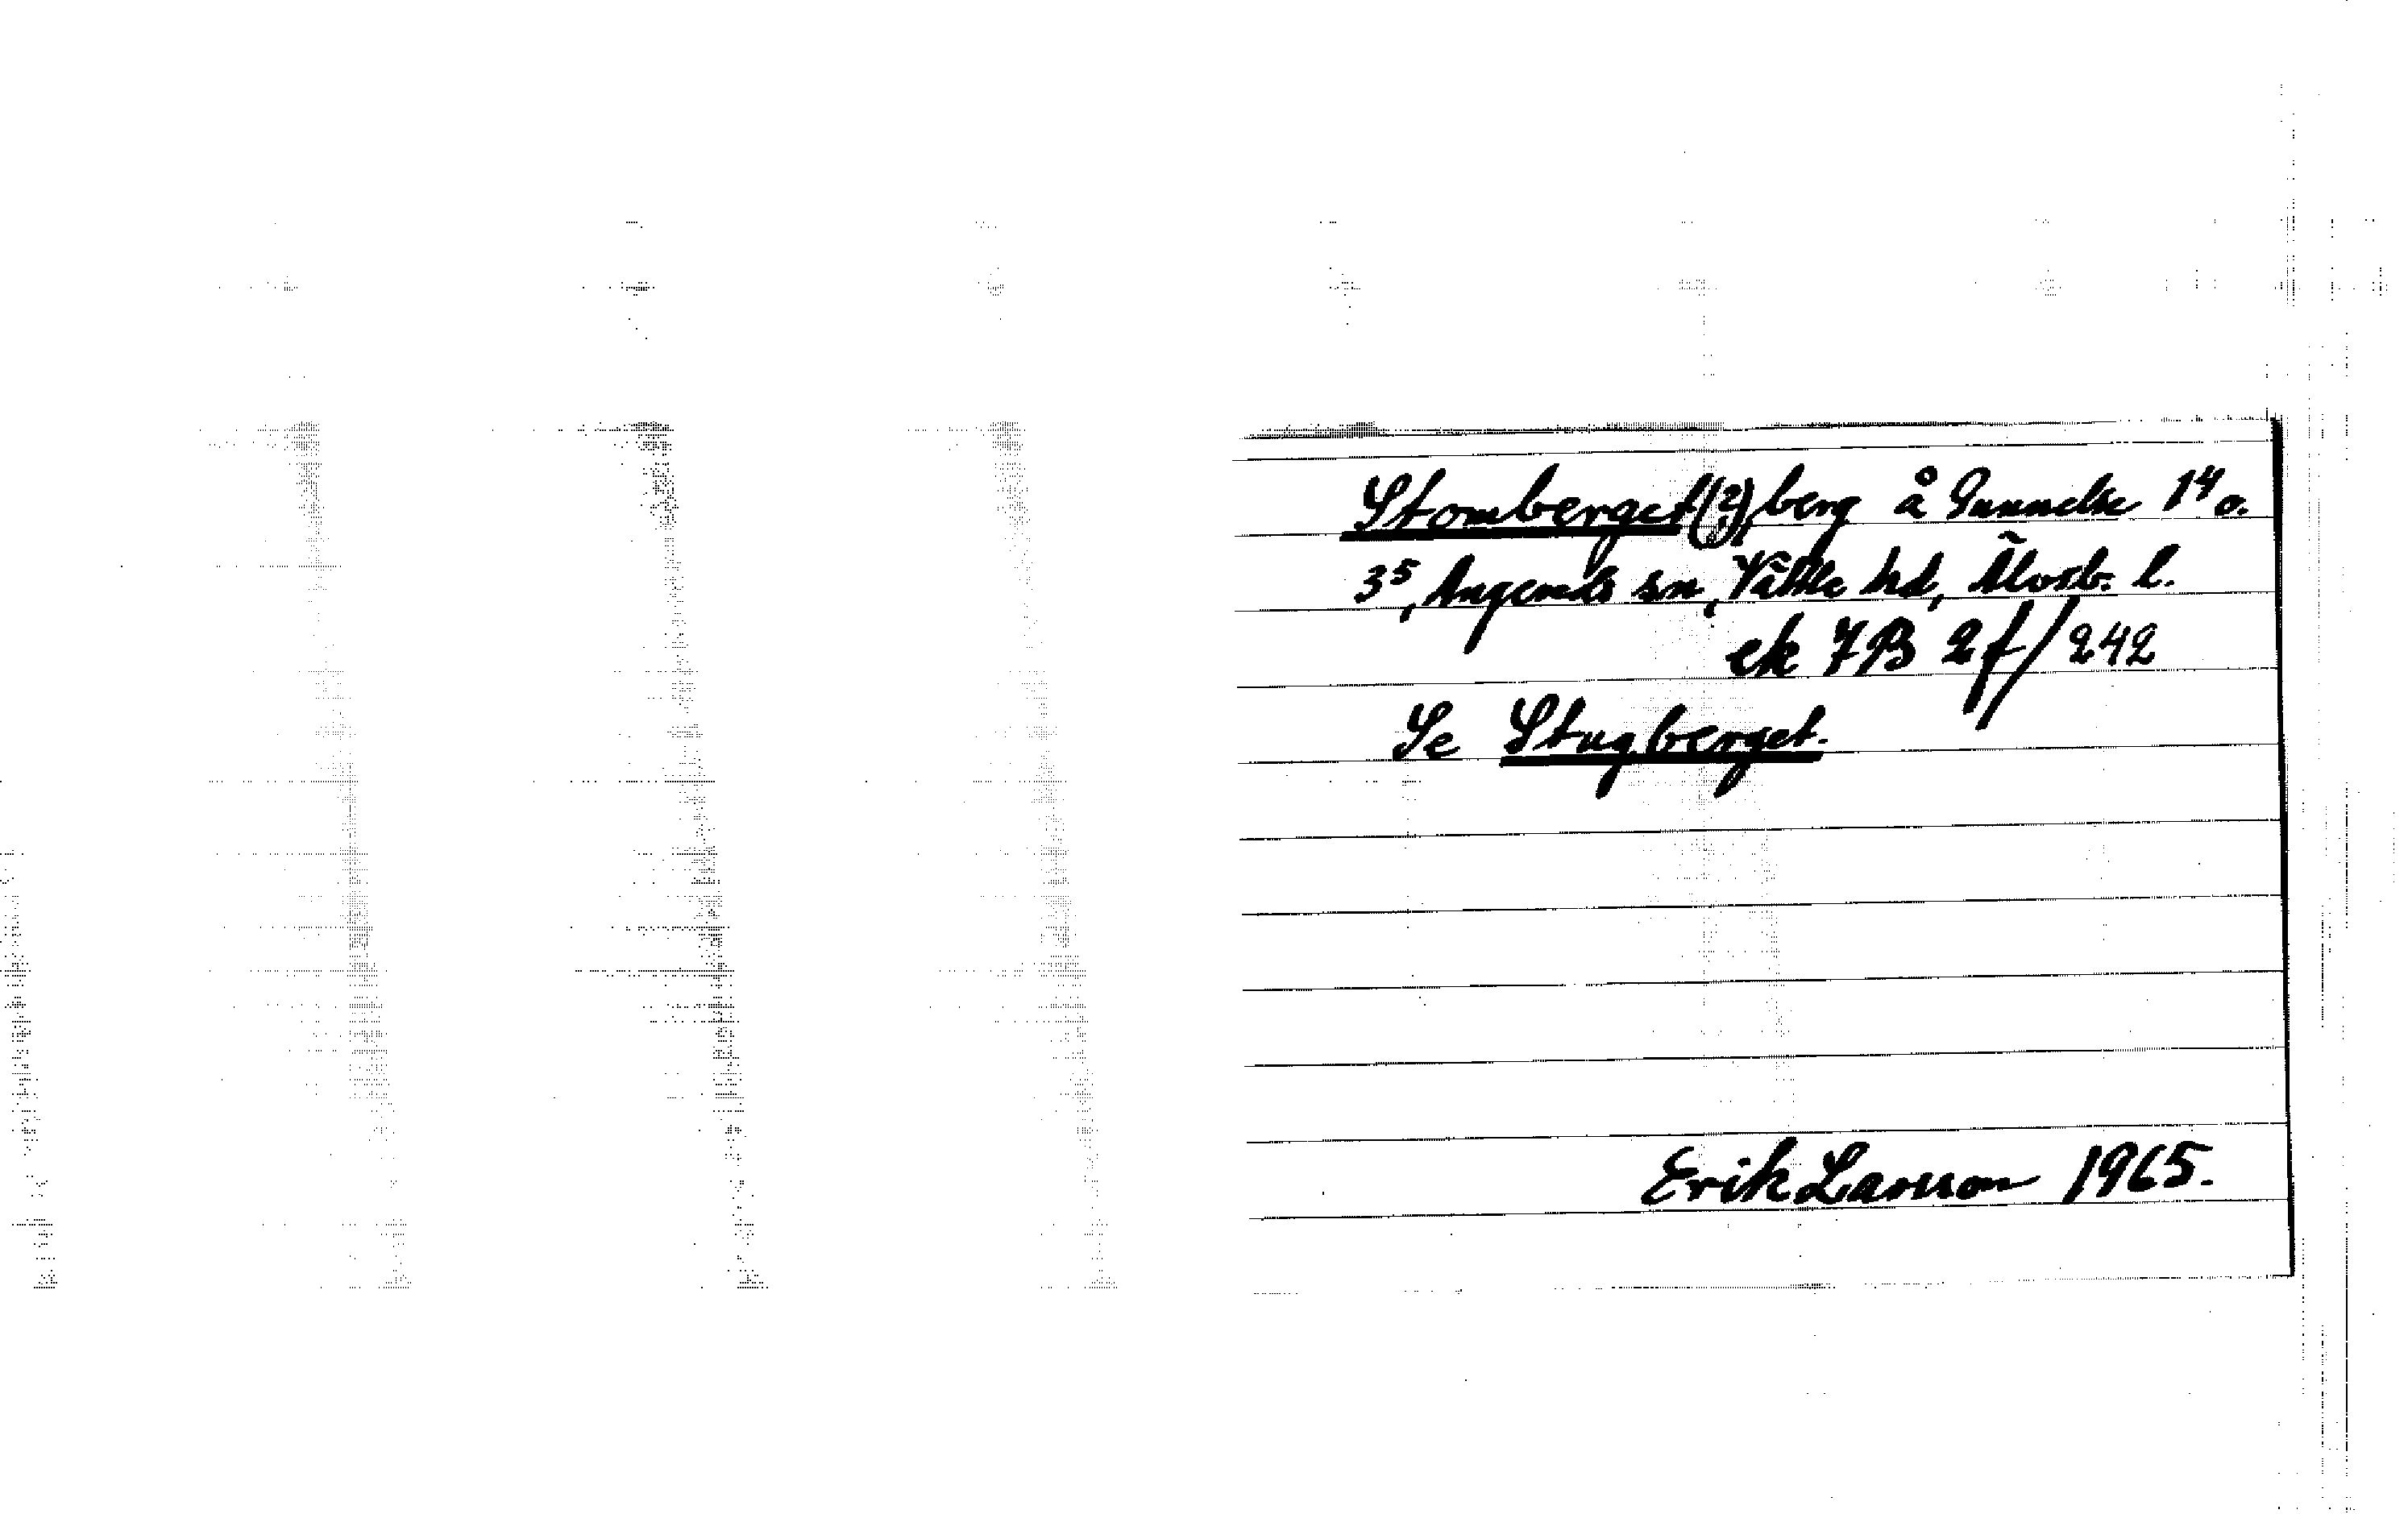 Stomberget(?), berg å Gunnelse 1⁴ o.
3⁵, Angereds sn, Vättle hd, Älvsb. l.
ek 7B 2f/242
Se Stugberget.
Erik Larsson 1965.